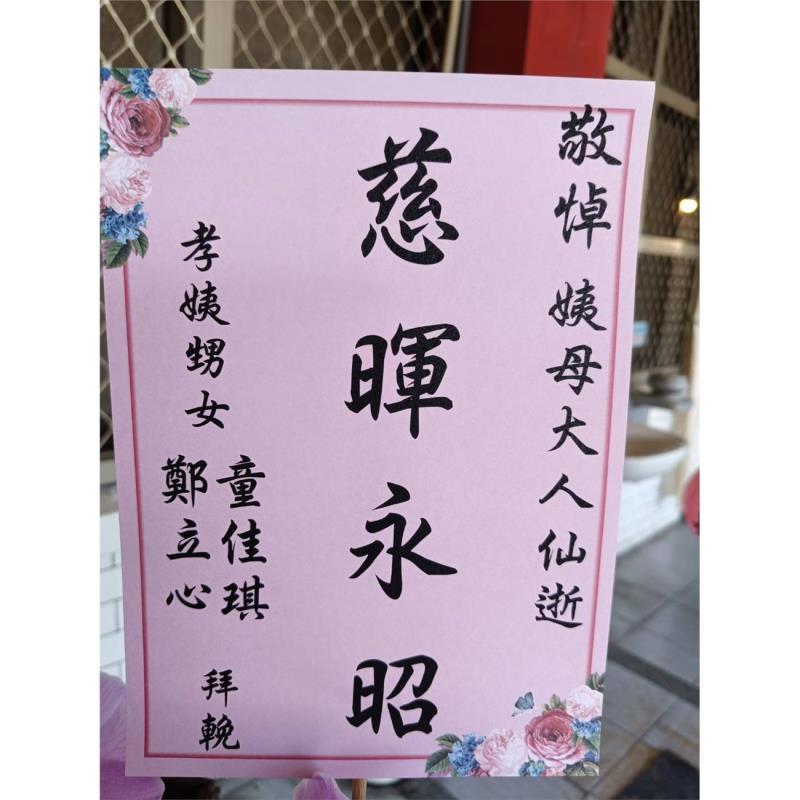 敬悼 姨母大人仙逝
慈暉永昭
孝姨甥女
童佳琪
鄭立心
拜輓